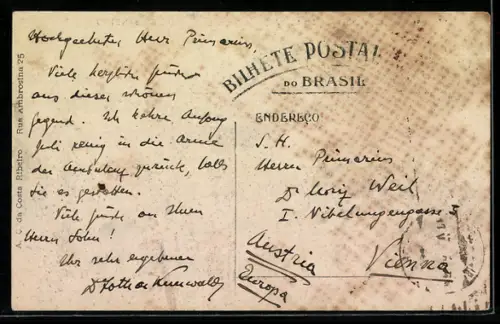 Hochgeehrter Herr Primarius,
Viele herzliche Grüße
aus dieser schönen
Gegend. Ich kehre Anfang
Juli reuig in die Arme
der Ambulanz zurück, falls
Sie es gestatten.
Viele Grüße an Ihren
Herrn Sohn!
Ihr sehr ergebener
Dr Lothar
A. C. da Costa Ribeiro Rua Ambrosina 25
BILHETE POSTAL
DO BRASIL
ENDEREÇO
S. H.
Herrn Primarius
Dr Moriz Weil
I. Nibelungengasse
Austria
Vienna
Europa